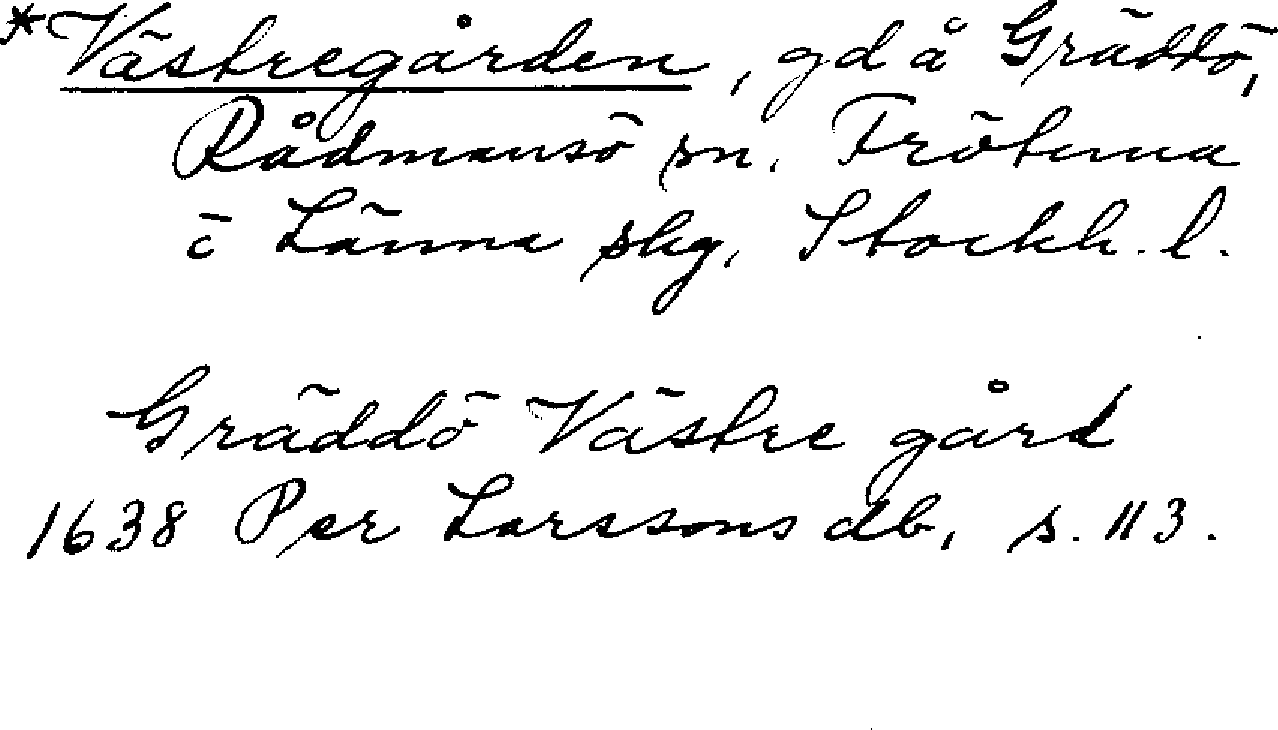 *Västregården, gd å Gräddö,
Rådmansö sn. Frötuna
o Länna skg, Stockh. l.
Gräddö Västre gård
1638 Per Larssons db, s. 113.